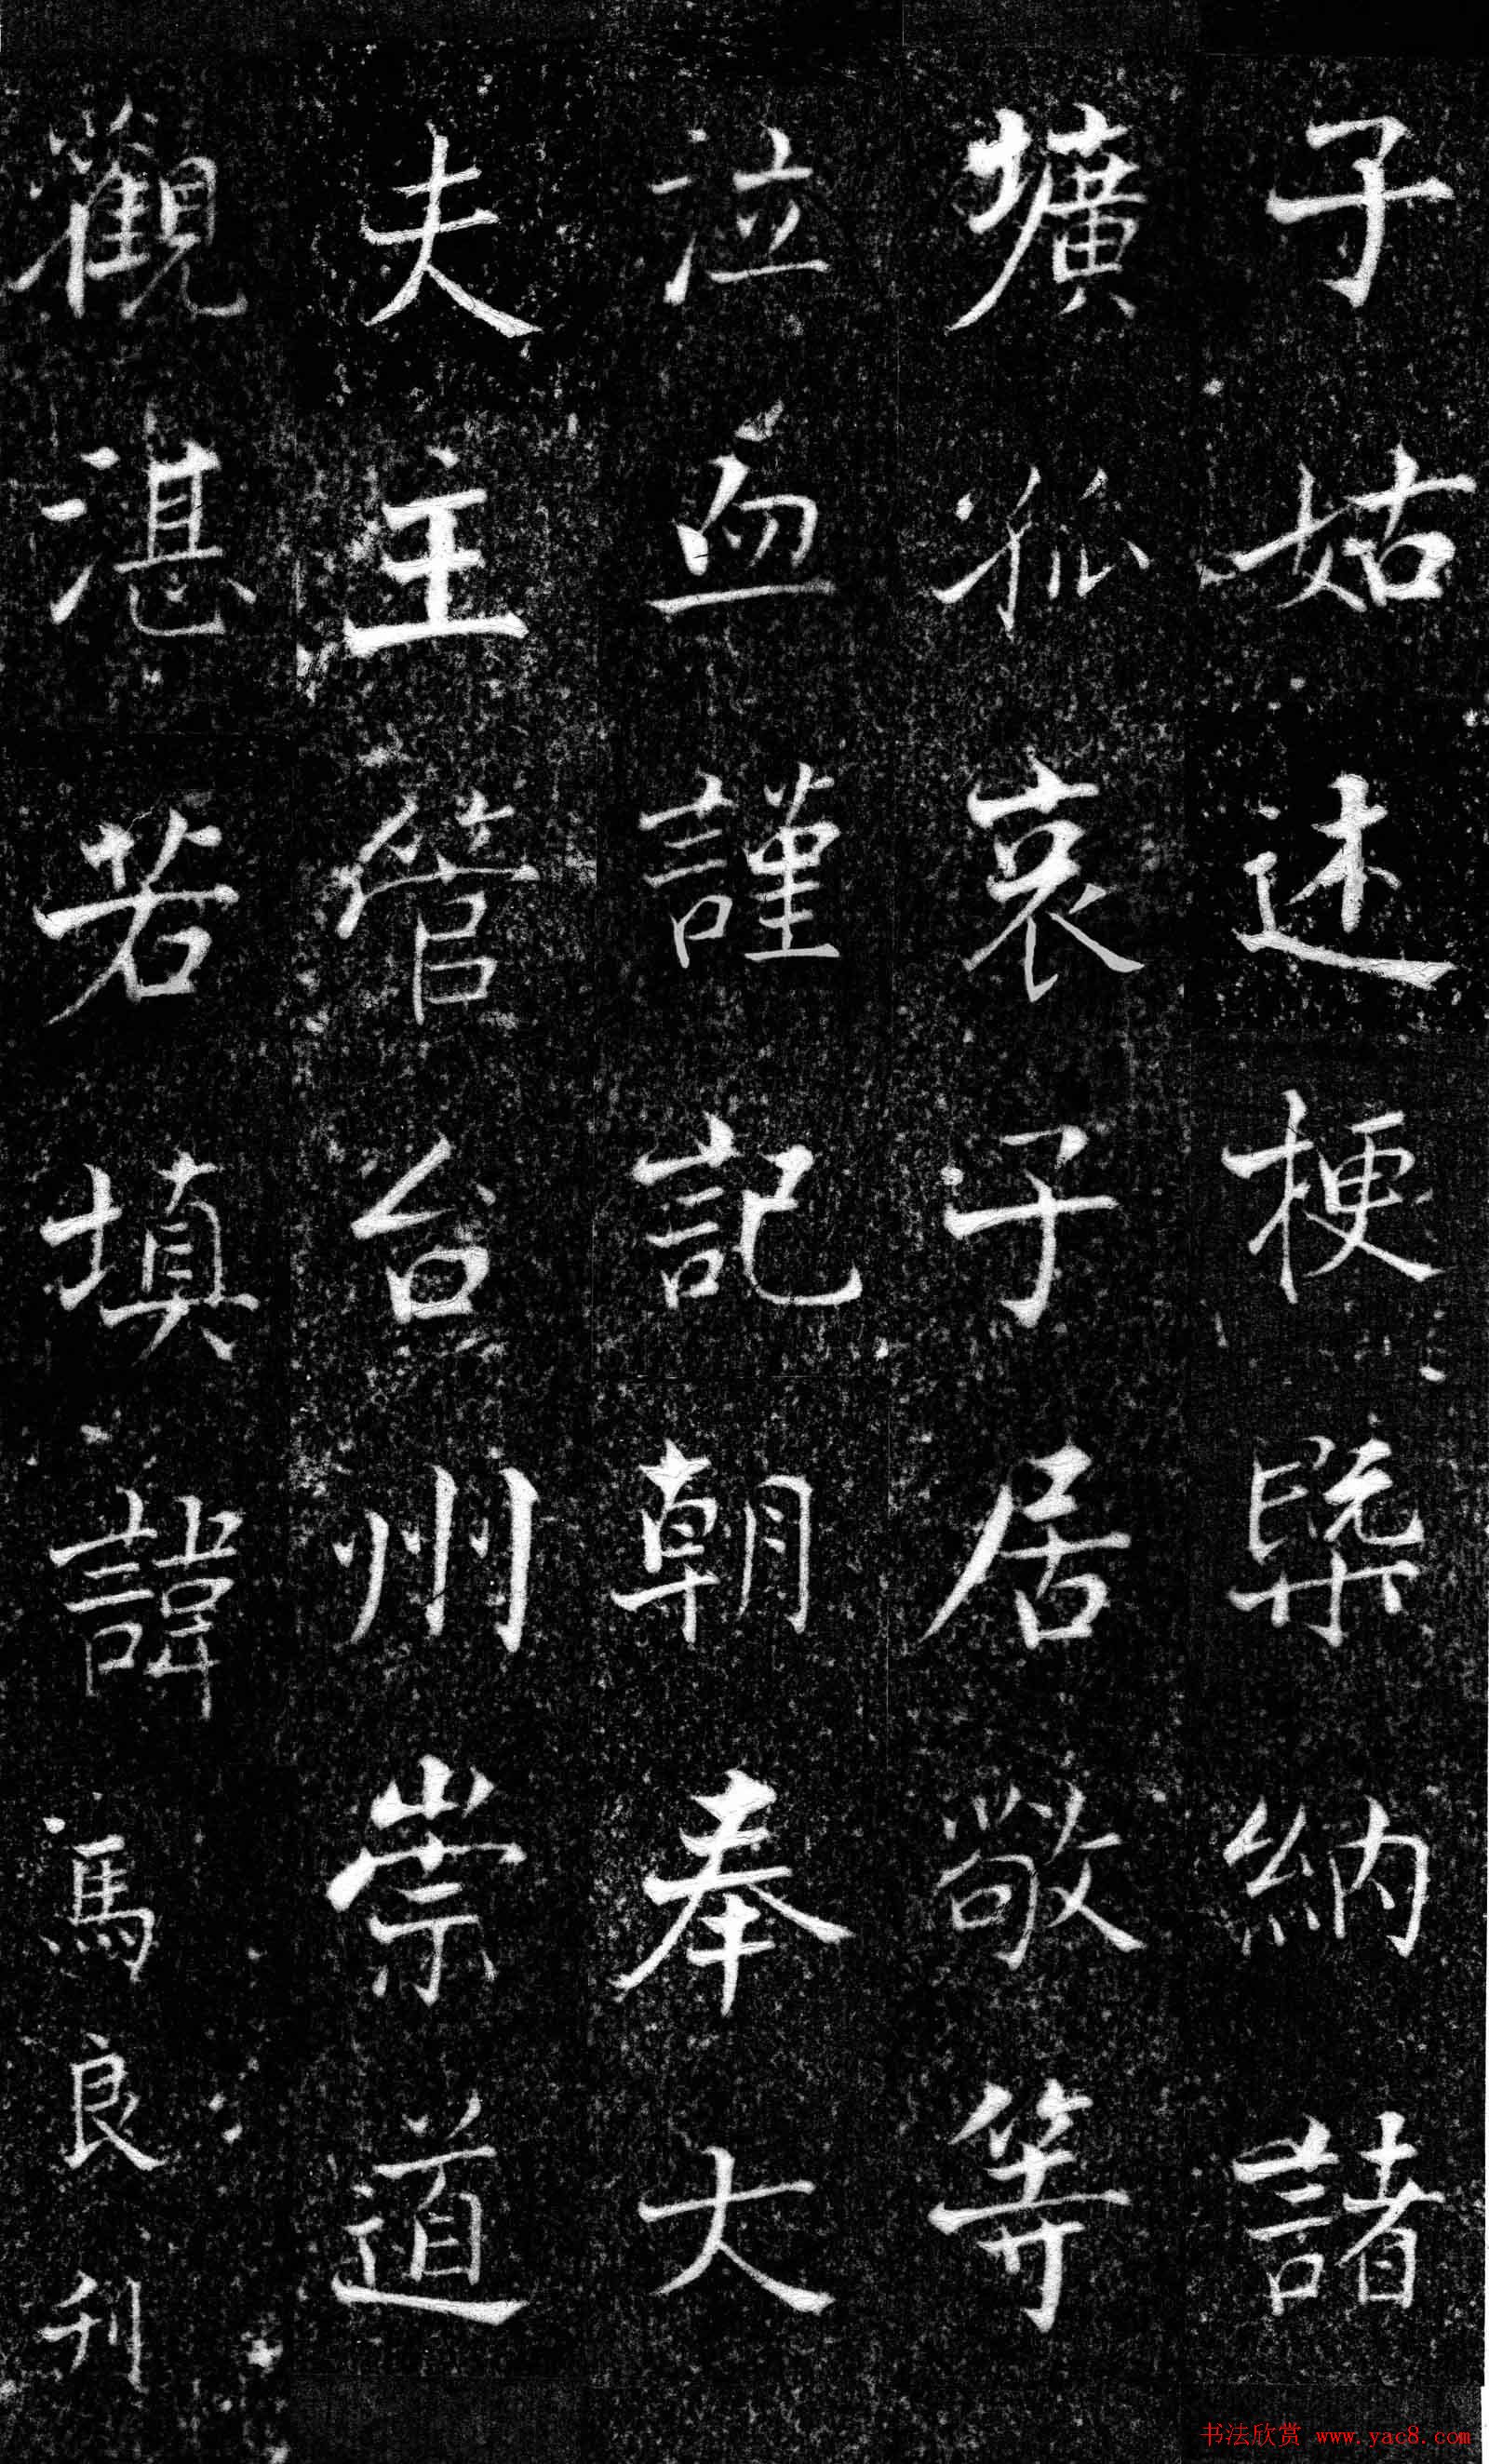 子姑述梗槩納諸
壙孤哀子居敬等
泣血謹記朝奉大
夫主管台州崇道
觀湛若填諱馮良刊
书法欣赏 www.yac8.com